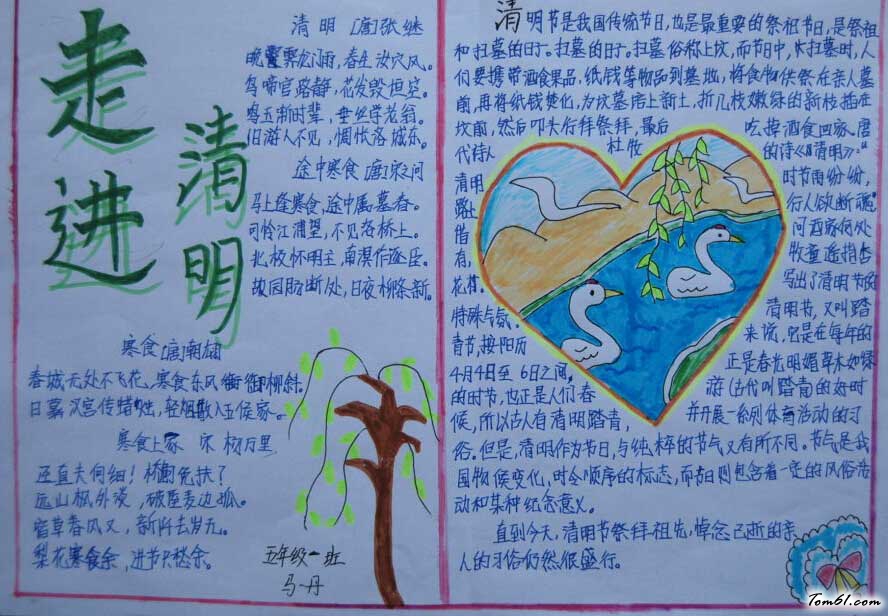 走进
清明
清 明 [唐]张继
晚霁龙门雨,春生汝穴风。
鸟啼官路静,花发毁垣空。
鸣玉惭时辈,垂丝学老翁。
旧游人不见,惆怅洛城东。
途中寒食 [唐]宋之问
马上逢寒食,途中属暮春。
可怜江浦望,不见洛桥上。
北极怀明主,南溟作逐臣。
故园肠断处,日夜柳条新。
寒食 [唐]韩翃
春城无处不飞花,寒食东风御柳斜。
日暮汉宫传蜡烛,轻烟散入五侯家。
寒食上冢 宋 杨万里
迳直夫何细!桥危免扶?
远山枫外淡,破屋麦边孤。
宿草春风又,新阡去岁无。
梨花寒食余,进节只愁余。
五年级一班
马丹
清明节是我国传统节日,也是最重要的祭祖节日,是祭祖
和扫墓的日子。扫墓的日子。扫墓俗称上坟,而节日中,扫墓时,人
们要携带酒食果品,纸钱等物品到墓地,将食物供祭在亲人墓
前,再将纸钱焚化,为坟墓培上新土,折几枝嫩绿的新枝插在
坟前,然后叩头行拜祭拜,最后 吃掉酒食回家。唐
代诗人 杜牧 的诗《清明》:“
清明 时节雨纷纷,
路上 行人欲断魂。
借 问酒家何处
有, 牧童遥指杏
花村。 写出了清明节的
特殊气氛。 清明节,又叫踏
青节,按阳历 来说,它是在每年的
4月4日至6日之间, 正是春光明媚草木如绿
的时节,也正是人们春 游(古代叫踏青)的好时
候,所以古人有清明踏青, 并开展一系列体育活动的习
俗。但是,清明作为节日,与纯粹的节气又有所不同。节气是我
国物候变化,时令顺序的标志,而节日则包含着一定的风俗活
动和某种纪念意义。
直到今天,清明节祭拜祖先,悼念已逝的亲
人的习俗仍然很盛行。
Tom61.com